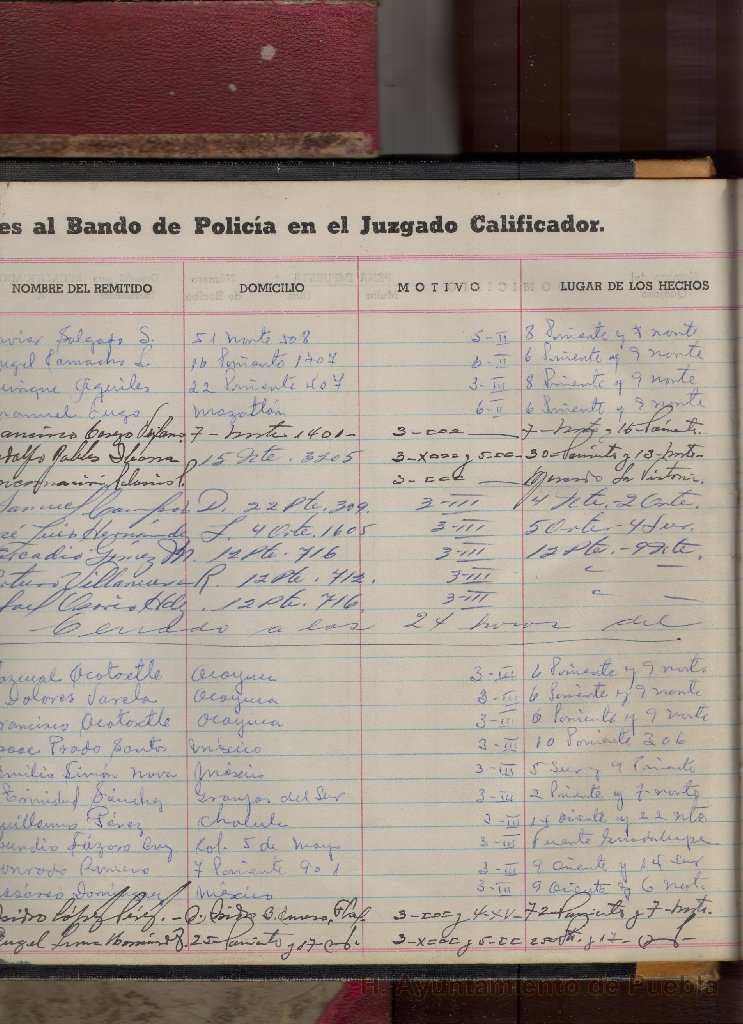 es al Bando de Policía en el Juzgado Calificador.
NOMBRE DEL REMITIDO DOMICILIO MOTIVO LUGAR DE LOS HECHOS
avier Salgado S. 51 norte 508 5-II 8 Poniente y 7 norte
ngel Camacho L. 16 Poniente 1707 6-II 6 Poniente y 9 norte
nrique Aguiles 22 Poniente 407 3-III 8 Poniente y 9 norte
anuel Lugo Mazatlán 6-II 6 Poniente y 9 norte
ancisco 7- Norte 1401- 3- 7- Norte y 16- Poniente.
dolfo 15 Pte. 3705 3- 30- Poniente y 13- Norte-
3- Mercado La Victoria.
anuel D. 22 Pte. 309. 3-III 4 Pte.-2 Orte.
sé Luis Hernánde L. 4 Orte. 1605 3-III 5 Orte.-4 Sur.
rcadio M. 12 Pte. 716 3-III 12 Pte.-9 Nte.
rturo Villanueva R. 12 Pte. 712. 3-III " —
ael Osorio Hdz. 12 Pte. 716. 3-III " —
Cerrado a las 24 horas del
ascual Ocotoxtle Ocoyuca 3-III 6 Poniente y 9 norte
Dolores Varela Ocoyuca 3-III 6 Poniente y 9 norte
rancisco Ocotoxtle Ocoyuca 3-III 6 Poniente y 9 norte
Prado Santos México 3-III 10 Poniente 306
milio Simón Nova México 3-III 5 Sur y 9 Poniente
Trinidad Sánchez Granjas del Sur 3-III 2 Poniente y 7 norte
uillermo Pérez Cholula 3-III 14 oriente y 22 nte
undio Lázaro Cruz Col. 5 de Mayo 3-III Fuente Guadalupe
onrado Romero 7 Poniente 901 3-III 9 oriente y 14 sur
esáreo Domínguez México 3-III 9 Oriente y 6 norte
sidro López Pérez.- 3- y 4- 72 Poniente y 7- Norte.
ngel Lima 25- Poniente y 17- Sur. 3- y 5- 25 Pte. y 17- Sur
H. Ayuntamiento de Puebla